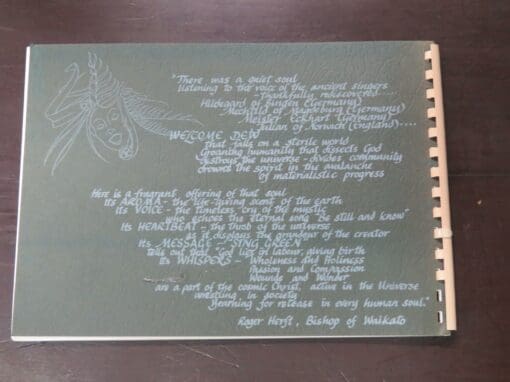 "There was a quiet soul
listening to the voice of the ancient singers
- thankfully rediscovered....
Hildegard of Bingen (Germany)
Mechtild of Magdeburg (Germany)
Meister Eckhart (Germany)
Julian of Norwich (England)....
WELCOME DEW
that falls on a sterile world
Groaning humanity that dissects God
destroys the universe - divides community
drowns the spirit in the avalanche
of materialistic progress
Here is a fragrant offering of that soul
Its AROMA - the life-giving scent of the earth
Its VOICE - the timeless cry of the mystic
who echoes the eternal song "Be still and know"
Its HEARTBEAT - the throb of the universe
as it displays the grandeur of the creator
Its MESSAGE - SING GREEN
tells out that "God lies in labour, giving birth
Its WHISPERS - Wholeness and Holiness
Passion and Compassion
Wounds and Wonder
are a part of the cosmic Christ, active in the Universe
wrestling in society
yearning for release in every human soul."
Roger Herft, Bishop of Waikato